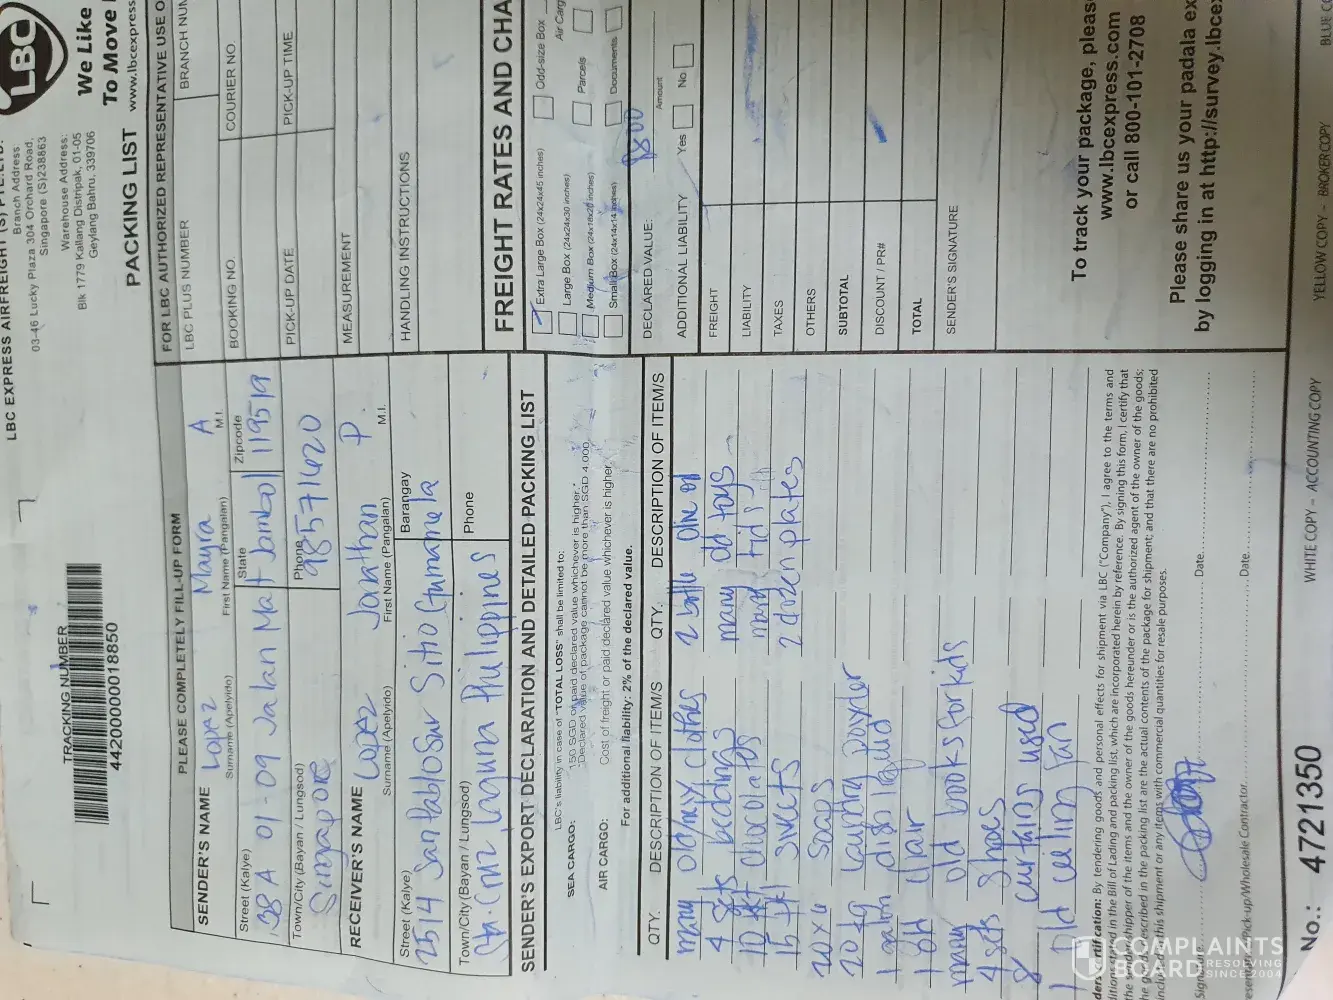 LBC
We Like
To Move
www.lbcexpress
LBC EXPRESS AIRFREIGHT (S) PTE.LTD.
Branch Address:
03-46 Lucky Plaza 304 Orchard Road,
Singapore (S)238863
Warehouse Address:
Blk 1779 Kallang Distripak, 01-05
Geylang Bahru, 339706
PACKING LIST
TRACKING NUMBER
44200000018850
PLEASE COMPLETELY FILL-UP FORM
SENDER'S NAME Lopez Mayra A
Surname (Apelyido) First Name (Pangalan) M.I.
Street (Kalye) State Zipcode
38A 01-09 Jalan Mat Jambol 119519
Town/City (Bayan / Lungsod) Phone
Singapore 98571420
RECEIVER'S NAME Lopez Jonathan P.
Surname (Apelyido) First Name (Pangalan) M.I.
Street (Kalye) Barangay
2514 San Pablo Sur Sitio Gumamela
Town/City (Bayan / Lungsod) Phone
Sta. Cruz, Laguna Philippines
FOR LBC AUTHORIZED REPRESENTATIVE USE O
LBC PLUS NUMBER BRANCH NUM
BOOKING NO. COURIER NO.
PICK-UP DATE PICK-UP TIME
MEASUREMENT
HANDLING INSTRUCTIONS
SENDER'S EXPORT DECLARATION AND DETAILED PACKING LIST
LBC's liability in case of "TOTAL LOSS" shall be limited to:
SEA CARGO: 150 SGD or paid declared value whichever is higher.*
*Declared value of package cannot be more than SGD 4,000.
AIR CARGO: Cost of freight or paid declared value whichever is higher.
For additional liability: 2% of the declared value.
QTY. DESCRIPTION OF ITEM/S QTY. DESCRIPTION OF ITEM/S QTY. DESCRIPTION OF ITEM/S
many old/new clothes 2 bottle olive oil
4 sets beddings many old toys
10 pkt chocolates many
15 pkt sweets 2 dozen plates
20 x 4 soaps
20 kg laundry powder
1 gallon dish liquid
1 old chair
many old books for kids
4 sets shoes
8 curtains used
1 old ceiling fan
FREIGHT RATES AND CHA
Extra Large Box (24x24x45 inches) Odd-size Box
Large Box (24x24x30 inches) Air Carg
Medium Box (24x18x20 inches) Parcels
Small Box (24x14x14 inches) Documents
DECLARED VALUE: $800
Amount
ADDITIONAL LIABILITY Yes No
FREIGHT
LIABILITY
TAXES
OTHERS
SUBTOTAL
DISCOUNT / PR#
TOTAL
SENDER'S SIGNATURE
ders Certification: By tendering goods and personal effects for shipment via LBC ("Company"), I agree to the terms and
ditions in the Bill of Lading and packing list, which are incorporated herein by reference. By signing this form, I certify that
the shipper of the items and the owner of the goods hereunder or is the authorized agent of the owner of the goods;
he goods described in the packing list are the actual contents of the package for shipment; and that there are no prohibited
included in this shipment or any items with commercial quantities for resale purposes.
Signature Date
Pick-up/Wholesale Contractor Date
To track your package, pleas
www.lbcexpress.com
or call 800-101-2708
Please share us your padala ex
by logging in at http://survey.lbce
No.: 4721350
WHITE COPY - ACCOUNTING COPY
YELLOW COPY - BROKER COPY
BLUE CO
COMPLAINTS
BOARD
RESOLVING
SINCE 2004